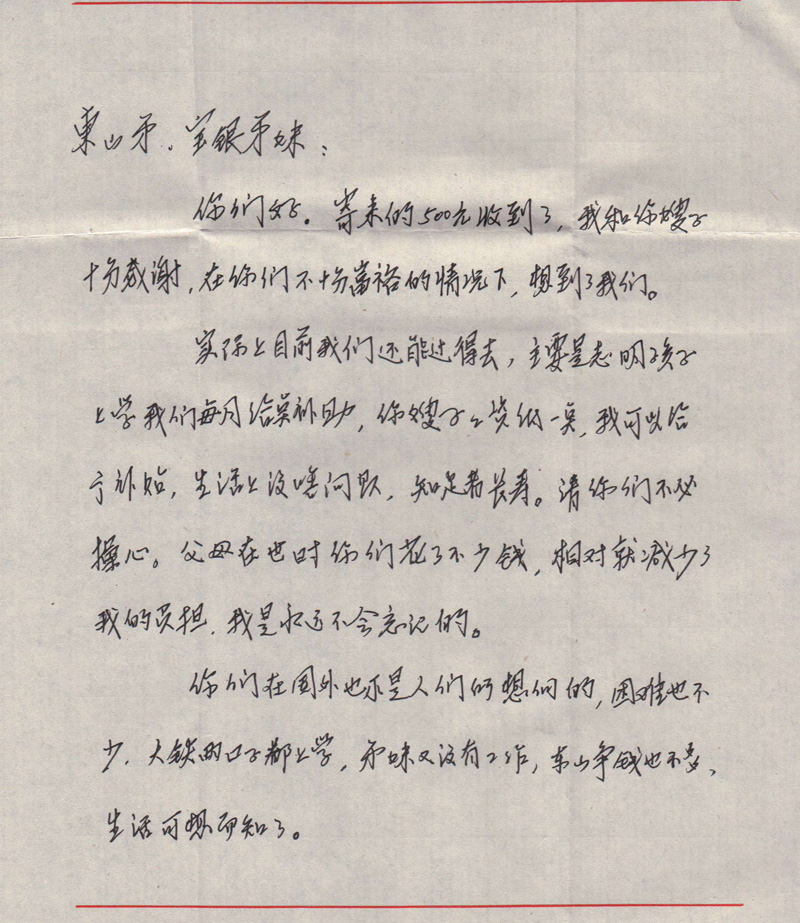 東山弟、宝银弟妹：
你们好。寄来的500元收到了，我和你嫂子
十分感谢，在你们不十分富裕的情况下，想到了我们。
实际上目前我们还能过得去，主要是志明子孩子
上学我们每月给点补助，你嫂子工资低一点，我可以给
予补贴，生活上没啥问题，知足者长寿。请你们不必
操心。父母在世时你们花了不少钱，相对就减少了
我的负担，我是永远不会忘记的。
你们在国外也不是人们所想像的，困难也不
少，大铁两口子都上学，弟妹又没有工作，东山争钱也不多，
生活可想而知了。